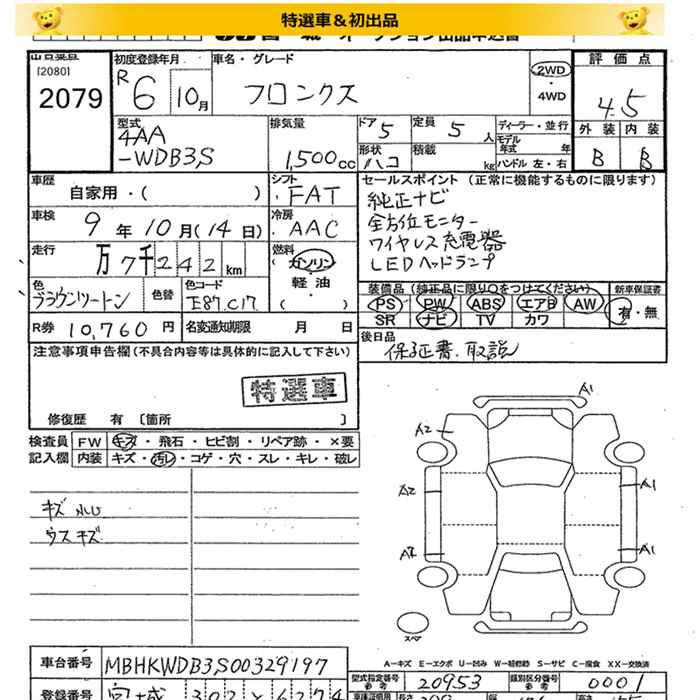 特選車&初出品
[2080]
2079
初度登録年月
R 6 10月
車名・グレード
フロンクス
2WD
・
4WD
評価点
4.5
外装 内装
B B
型式
4AA
-WDB3S
排気量
1,500cc
ドア 5
定員 5 人
形状 ハコ
積載 kg
ディーラー・並行
モデル年式 年
ハンドル 左・右
車歴
自家用・( )
シフト
・FAT
車検
9年10月(14日)
冷房
・AAC
走行
万7千242km
燃料
ガソリン
・
軽油
・
( )
色
ブラウンツートン
色替
色コード
E87.C17
R券 10,760 円
名変通知期限 月 日
セールスポイント (正常に機能するものに限ります)
純正ナビ
全方位モニター
ワイヤレス充電器
LEDヘッドランプ
装備品(純正品に限り○をつけてください)
PS PW ABS エアB AW
SR ナビ TV カワ
新車保証書
有・無
後日品
保証書.取説
注意事項申告欄(不具合内容等は具体的に記入して下さい)
特選車
修復歴 有 〔箇所 〕
検査員記入欄
FW キズ・飛石・ヒビ割・リペア跡・×要
内装 キズ・汚レ・コゲ・穴・スレ・キレ・破レ
キズ
ウスキズ
A1
A2
A2
A1
A1
スペア
A-キズ E-エクボ U-凹み W-補修跡 S-サビ C-腐食 XX-交換済
車台番号 MBHKWDB3S00329197
型式指定番号 参考 20953
類別区分番号 参考 0001
登録番号 宮城